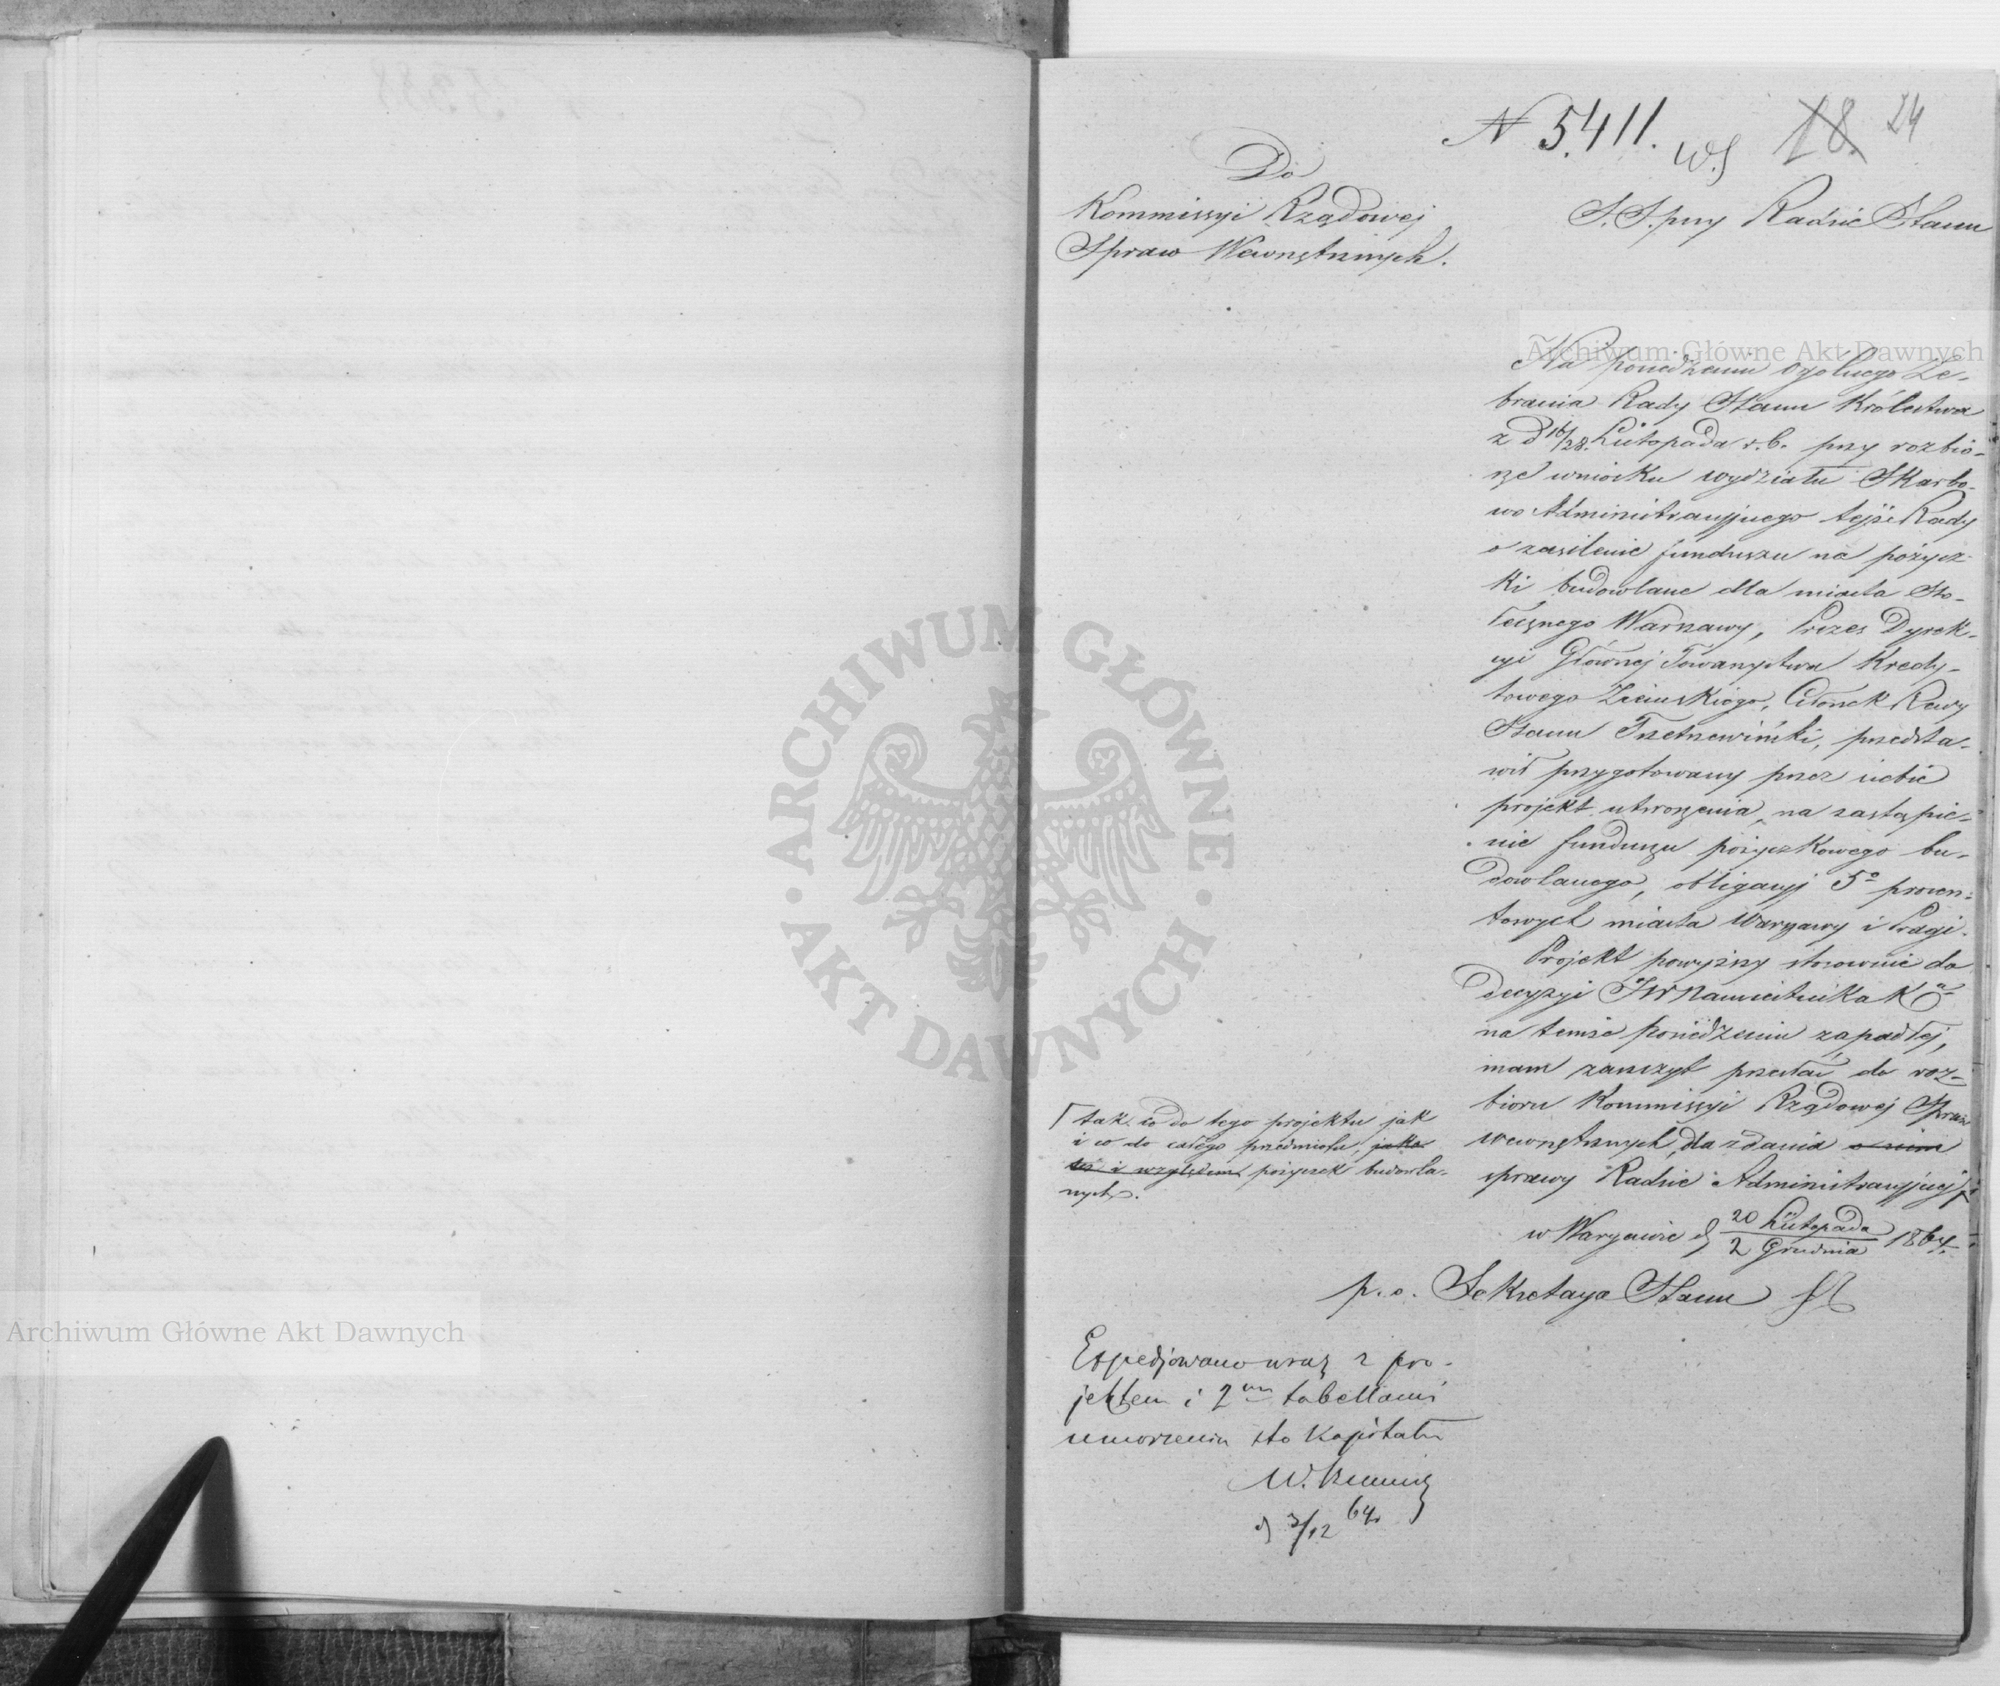 N 5411.
18. 24
Do
Kommissyi Rządowej
Spraw Wewnętrznych.
S. S. przy Radzie Stanu
Na posiedzeniu Ogólnego Ze-
brania Rady Stanu Królestwa
z d 16/28. Listopada r.b. przy rozbio-
rze wniosku wydziału Skarbo-
wo Administracyjnego tejże Rady
o zasilenie funduszu na pożycz-
ki budowlane dla miasta Sto-
łecznego Warszawy, Prezes Dyrek-
cyi Głównej Towarzystwa Kredy-
towego Ziemskiego, Członek Rady
Stanu Trzetrzewiński, przedsta-
wił przygotowany przez siebie
projekt utworzenia, na zastąpie-
nie funduszu pożyczkowego bu-
dowlanego, obligacyj 5o procen-
towych miasta Warszawy i Pragi.
Projekt powyższy stosownie do
decyzyi JW Namiestnika K
na temże posiedzeniu zapadłej,
mam zaszczyt przesłać do roz-
bioru Kommissyi Rządowej Spraw
Wewnętrznych, dla zdania o nim
sprawy Radzie Administracyjnej
tak co do tego projektu jak
i co do całego przedmiotu, jako
też i względem pożyczek budowla-
nych.
w Warszawie d 20 Listopada / 2 Grudnia 1864.
p. o. Sekretarza Stanu
Expedjowano wraz z pro-
jektem i 2ma tabellami
umorzenia sto kapitału
d 3/12 64.
Archiwum Główne Akt Dawnych
Archiwum Główne Akt Dawnych
ARCHIWUM GŁÓWNE
AKT DAWNYCH